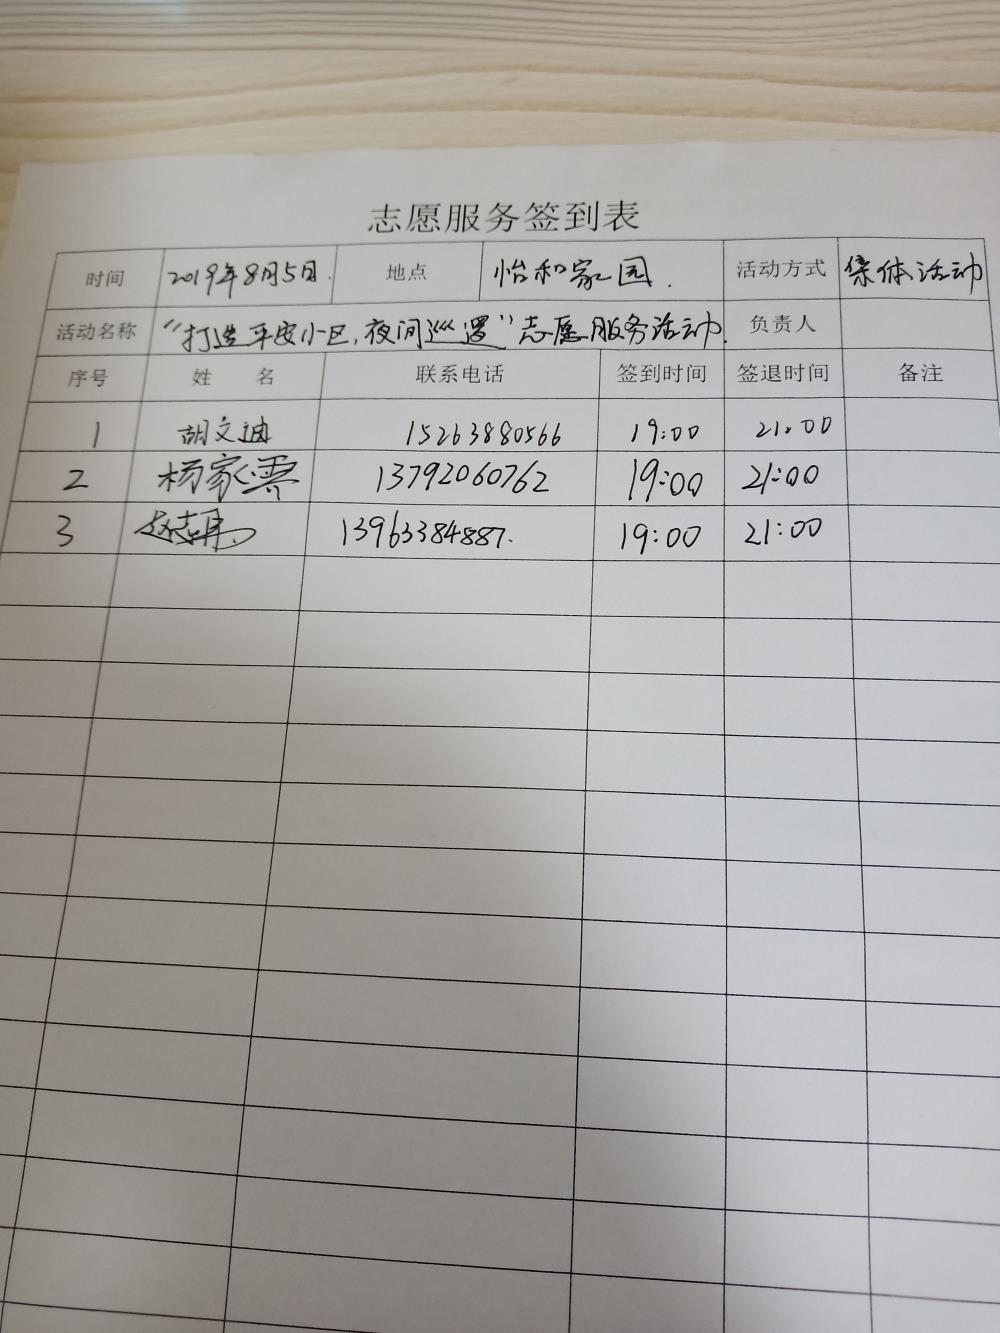 志愿服务签到表
时间 2019年8月5日. 地点 怡和家园. 活动方式 集体活动
活动名称 “打造平安小区,夜间巡逻”志愿服务活动. 负责人
序号 姓 名 联系电话 签到时间 签退时间 备注
1 胡文迪 15263880566 19:00 21:00
2 杨家霁 13792060762 19:00 21:00
3 赵志 13963384887. 19:00 21:00